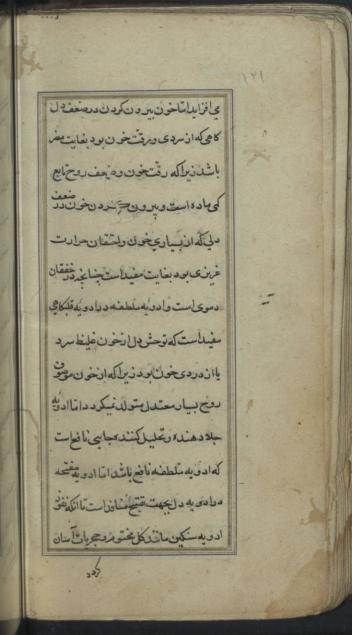 ۱۲۱
می افزاید اما خون بیرون کردن در ضعف دل
کاهی که از سردی و رقت خون بود بغایت مضر
باشد زیرا که رقت خون و ضعف روح تابع
کمی ماده است و بیرون کردن خون در ضعف
دلی که از بسیاری خون و اختناق حرارت
غریزی بود بغایت مفید است چنانچه در خفقان
دموی است و ادویه ملطفه در ادویه قلب کاهی
مفید است که توحش دل از خون غلیظ سرد
یا از دردی خون بود زیرا که از خون موصوف
روح بسیار معتدل متولد نمیکردد اما ادویه
جلا دهنده و تحلیل کننده جایی نافع است
که ادویه ملطفه نافع باشد اما ادویه مفتحه
در ادویه دل بجهت تفتیح منافذ است تا آنکه نفوذ
ادویه سنکین مانند کل مختوم و حجریات آسان
کردد